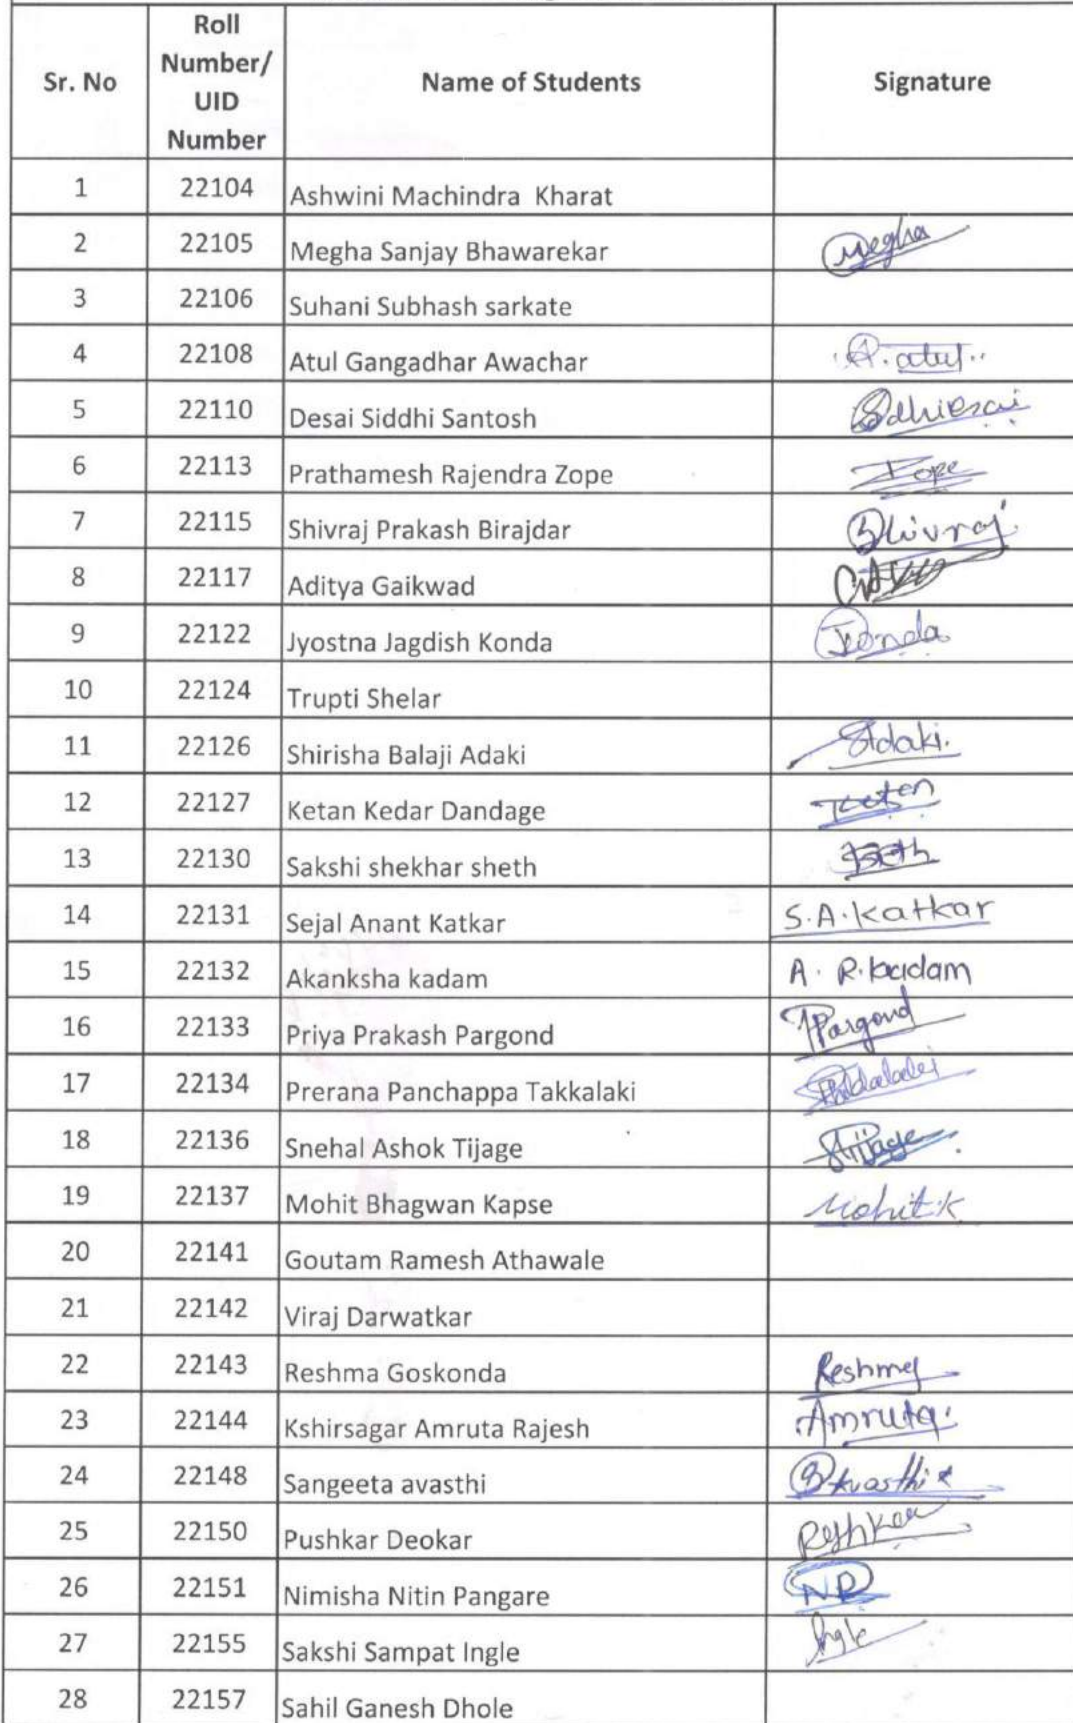 Sr. No Roll Number/ UID Number Name of Students Signature
1 22104 Ashwini Machindra Kharat
2 22105 Megha Sanjay Bhawarekar Megha
3 22106 Suhani Subhash sarkate
4 22108 Atul Gangadhar Awachar A. atul..
5 22110 Desai Siddhi Santosh
6 22113 Prathamesh Rajendra Zope Zope
7 22115 Shivraj Prakash Birajdar Shivraj
8 22117 Aditya Gaikwad
9 22122 Jyostna Jagdish Konda
10 22124 Trupti Shelar
11 22126 Shirisha Balaji Adaki SAdaki.
12 22127 Ketan Kedar Dandage Ketan
13 22130 Sakshi shekhar sheth
14 22131 Sejal Anant Katkar S.A.Katkar
15 22132 Akanksha kadam A. R. kadam
16 22133 Priya Prakash Pargond PPargond
17 22134 Prerana Panchappa Takkalaki
18 22136 Snehal Ashok Tijage STijage
19 22137 Mohit Bhagwan Kapse Mohit.K
20 22141 Goutam Ramesh Athawale
21 22142 Viraj Darwatkar
22 22143 Reshma Goskonda Reshma
23 22144 Kshirsagar Amruta Rajesh Amruta.
24 22148 Sangeeta avasthi SAvasthi
25 22150 Pushkar Deokar
26 22151 Nimisha Nitin Pangare NP
27 22155 Sakshi Sampat Ingle Ingle
28 22157 Sahil Ganesh Dhole